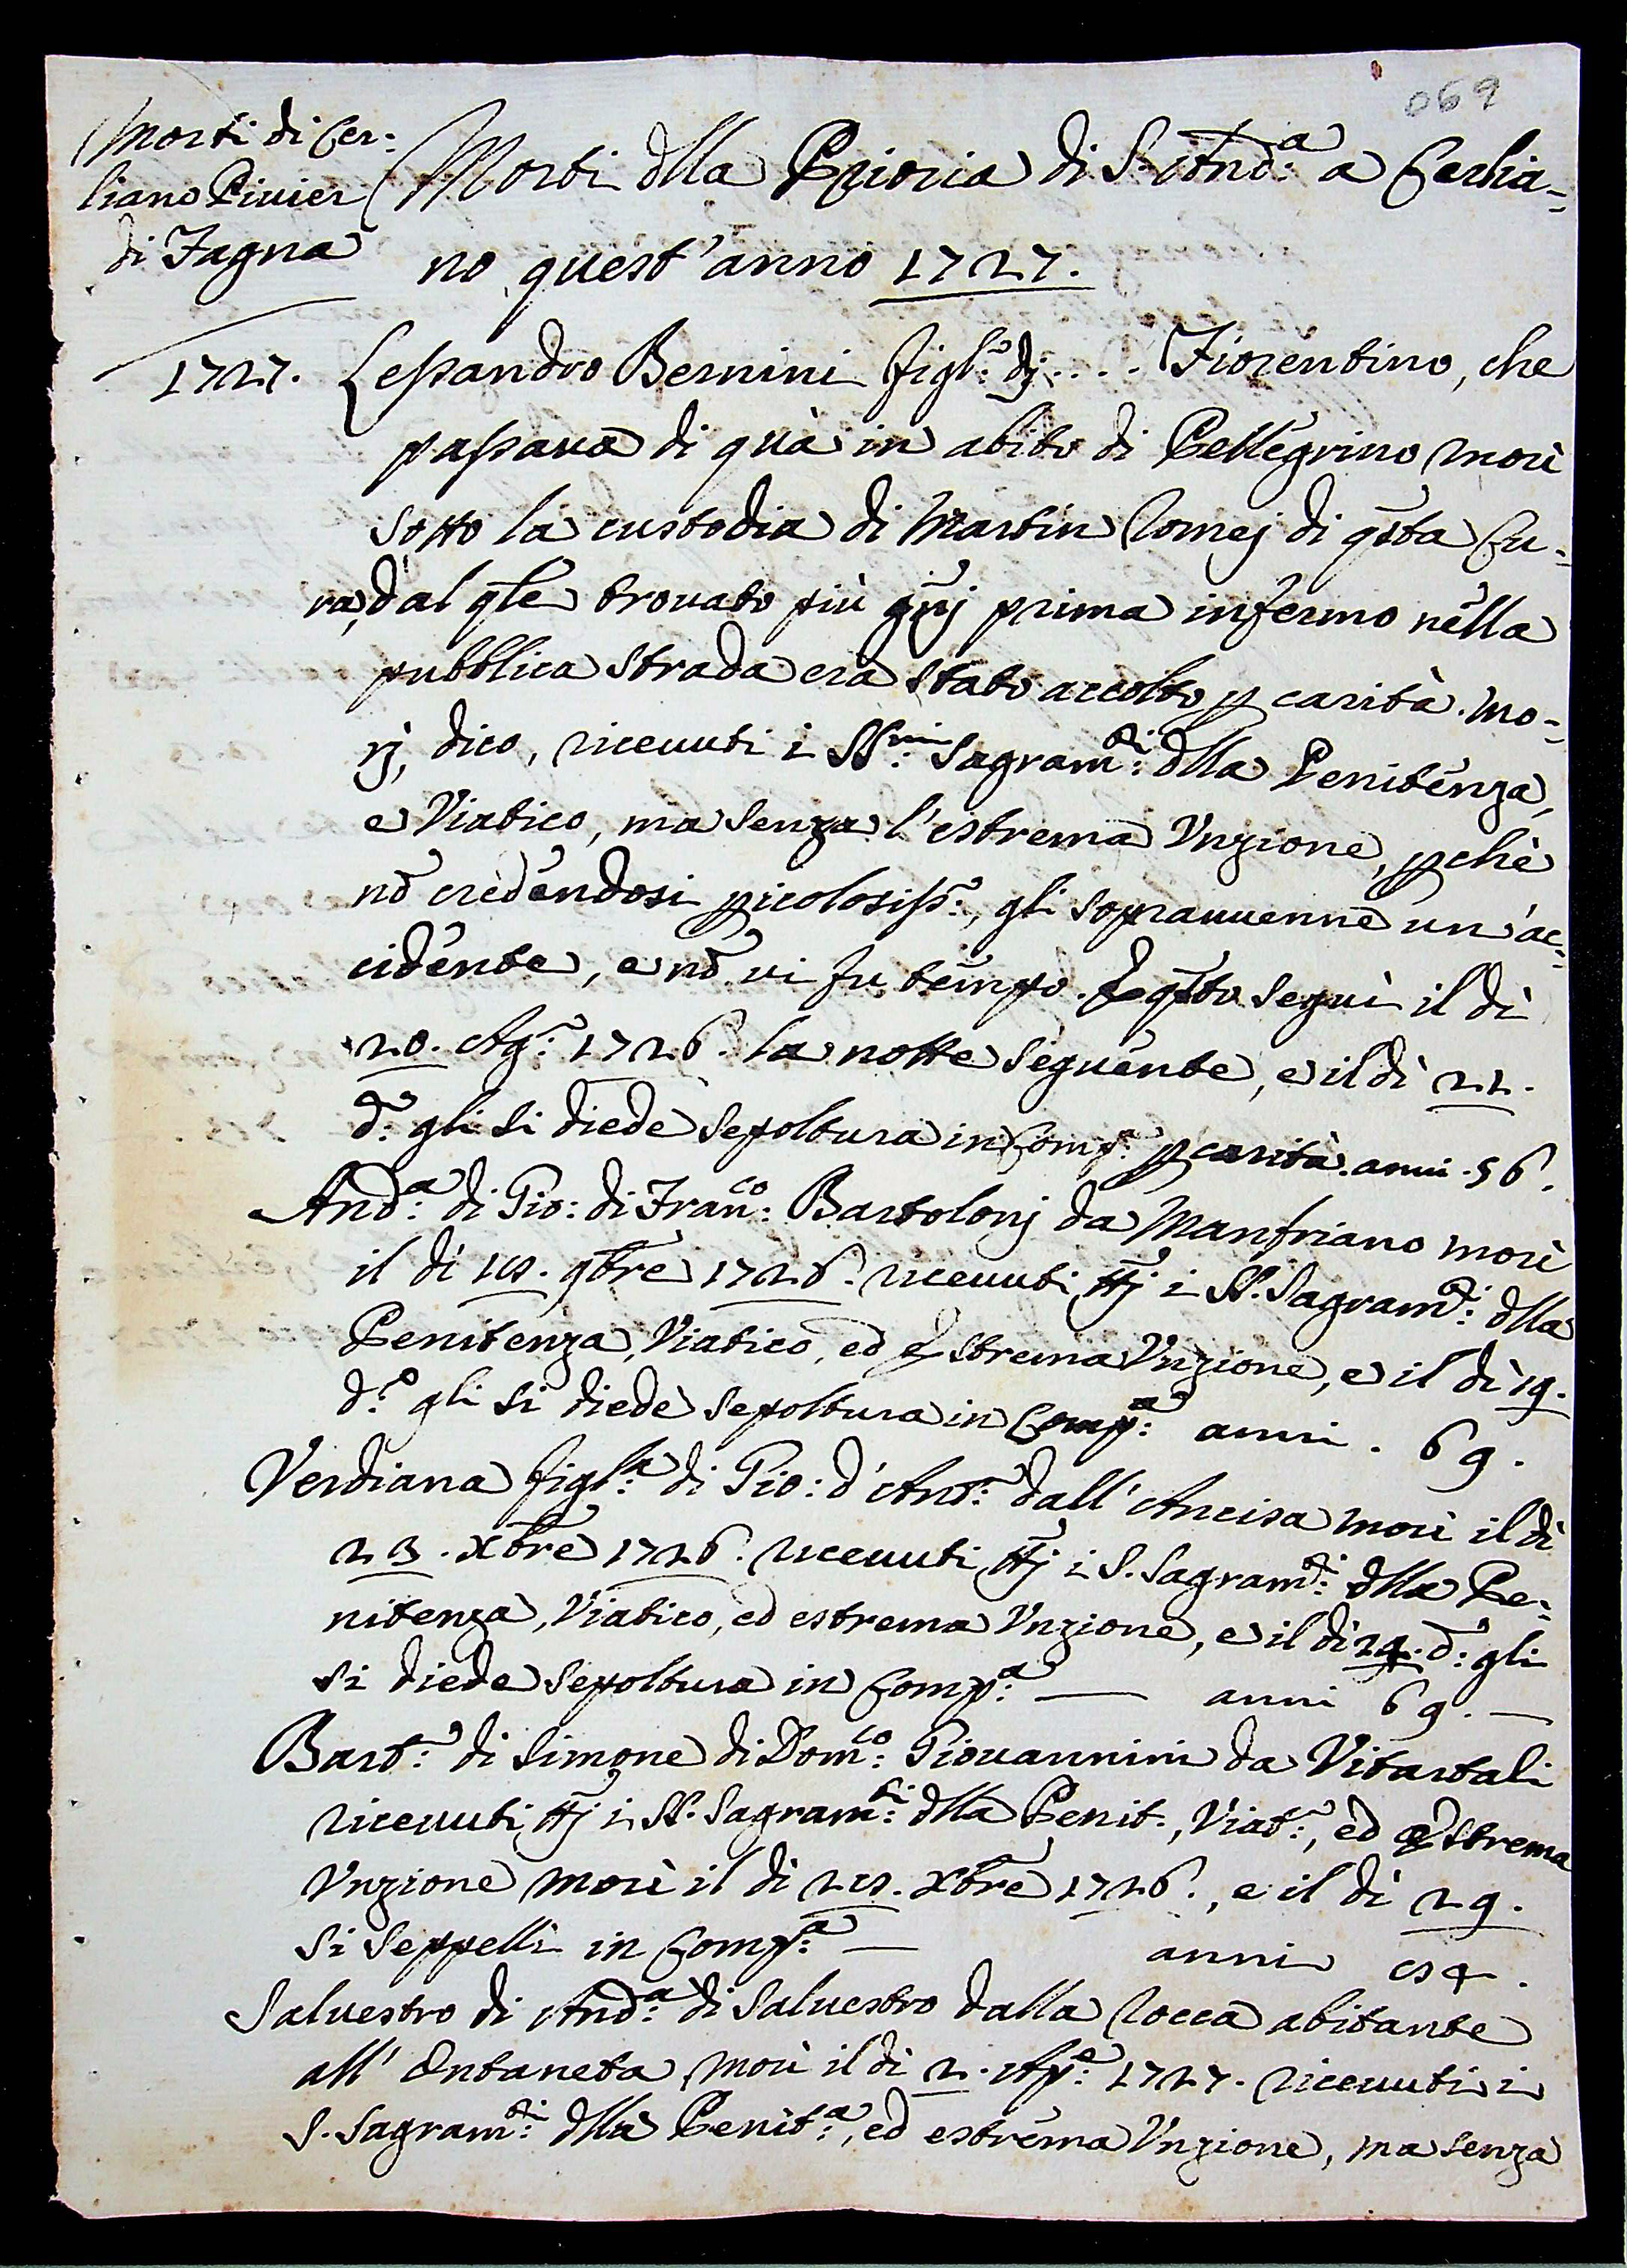 069
Morti di Cer=
liano Pivier
di Fagna
Morti dlla Prioria di S. Andª: a Cerlia=
no quest'anno 1727.
1727. Lessandro Bernini figl°: dj.... Fiorentino, che
passava di quà in abito di Pellegrino, morì
sotto la custodia di Martin Comej di qsta Cu=
ra, dal qle trovato più gnj prima infermo nella
pubblica strada era stato accolto p carità. mo=
rj, dico, ricevuti i SSmi: Sagramti: dlla Penitenza,
e Viatico, ma senza l'estrema Unzione, pchè
nō credendosi picolosiss°:, gli sopravvenne un'ac=
cidente, e nō vi fu tempo. E qsto seguì il dì
20. Ag°: 1726. la notte seguente, e il dì 22.
d°: gli si diede sepoltura in Compª: p carità. anni. 56.
Andª: di Gio: di Franco: Bartolonj da Manfriano morì
il dì 18. 9bre 1726. ricevuti ttj i SS. Sagramti: dlla
Penitenza, Viatico, ed Estrema Unzione, e il dì 19.
d°: gli si diede sepoltura in Compª: anni. 69.
Verdiana figlª: di Gio: d'Ant°: dall'Ancisa morì il dì
23. Xbre 1726. ricevuti ttj i S. Sagramti: dlla Pe=
nitenza, Viatico, ed estrema Unzione, e il dì 24. d°: gli
si diede sepoltura in Compª: — anni 69. —
Bart°: di Simone di Domco: Giovannini da Vitartali
ricevuti ttj i SS. Sagramti: dlla Penit., Viat°:, ed Estrema
Unzione morì il dì 28. Xbre 1726., e il dì 29.
si seppellì in Compª: — anni 84.
Salvestro di Andª: di Salvestro dalla Rocca abitante
all'Ontaneta morì il dì 2. Ap°: 1727. ricevuti i
S. Sagramti: dlla Penitª:, ed estrema Unzione, ma senza